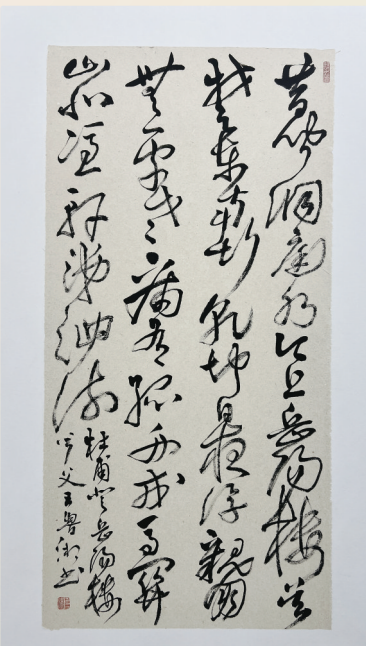 昔聞洞庭水今上岳陽樓吳
楚東南坼乾坤日夜浮親朋
無一字老病有孤舟戎馬關
山北憑軒涕泗流
杜甫登岳陽樓
父王魯書